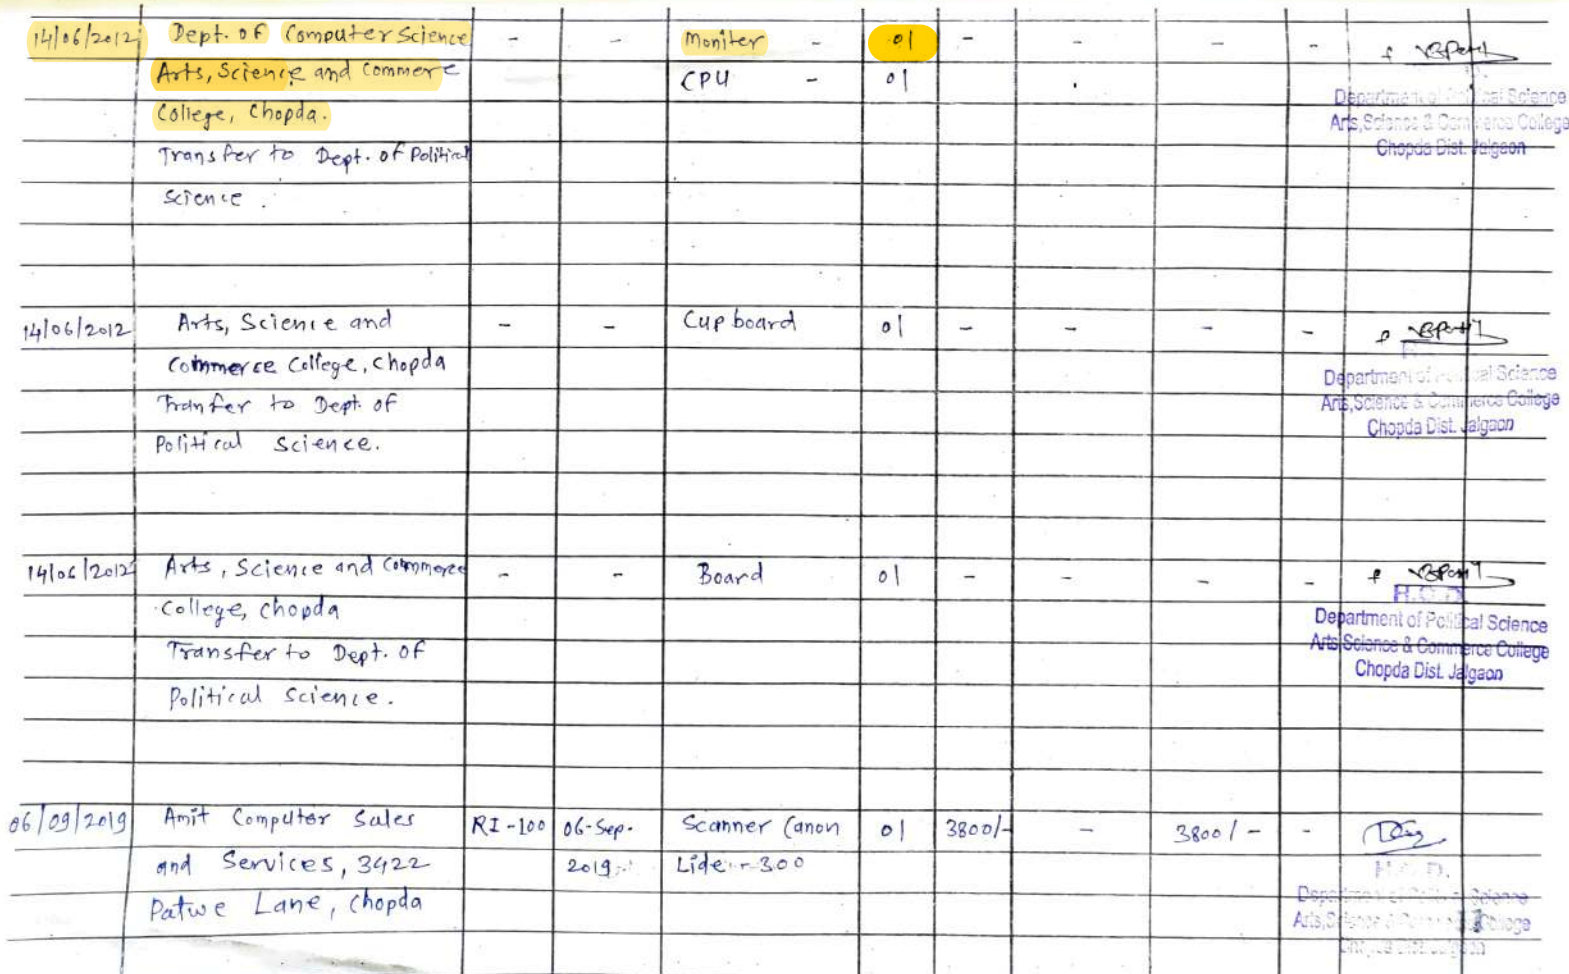 14/06/2012 Dept. of Computer Science - - Moniter - 01 - - - -
Arts, Science and Commere CPU - 01
College, Chopda.
Transfer to Dept. of Political
Science.
Department of Political Science
Arts, Science & Commerce College
Chopda Dist. Jalgaon
14/06/2012 Arts, Science and - - Cupboard 01 - - - -
Commerce College, Chopda
Tranfer to Dept. of
Political Science.
Department of Political Science
Arts, Science & Commerce College
Chopda Dist. Jalgaon
14/06/2012 Arts, Science and Commerce - - Board 01 - - - -
College, Chopda
Transfer to Dept. of
Political Science.
H.O.D.
Department of Political Science
Arts, Science & Commerce College
Chopda Dist. Jalgaon
06/09/2019 Amit Computer Sales RI-100 06-Sep. Scanner Canon 01 3800/- - 3800/- -
and Services, 3422 2019 Lide - 300
Patwe Lane, Chopda
H.O.D.
Department of Political Science
Arts, Science & Commerce College